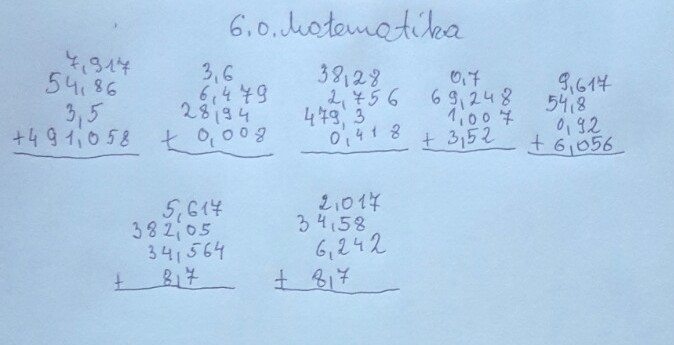 6.o. Matematika
7,917
54,86
3,5
+491,058
3,6
6,479
28,94
+ 0,008
38,28
2,756
479,3
0,418
0,7
69,248
1,007
+ 3,52
9,617
54,8
0,92
+ 6,056
5,617
382,05
34,564
+ 8,7
2,017
34,58
6,242
+ 8,7